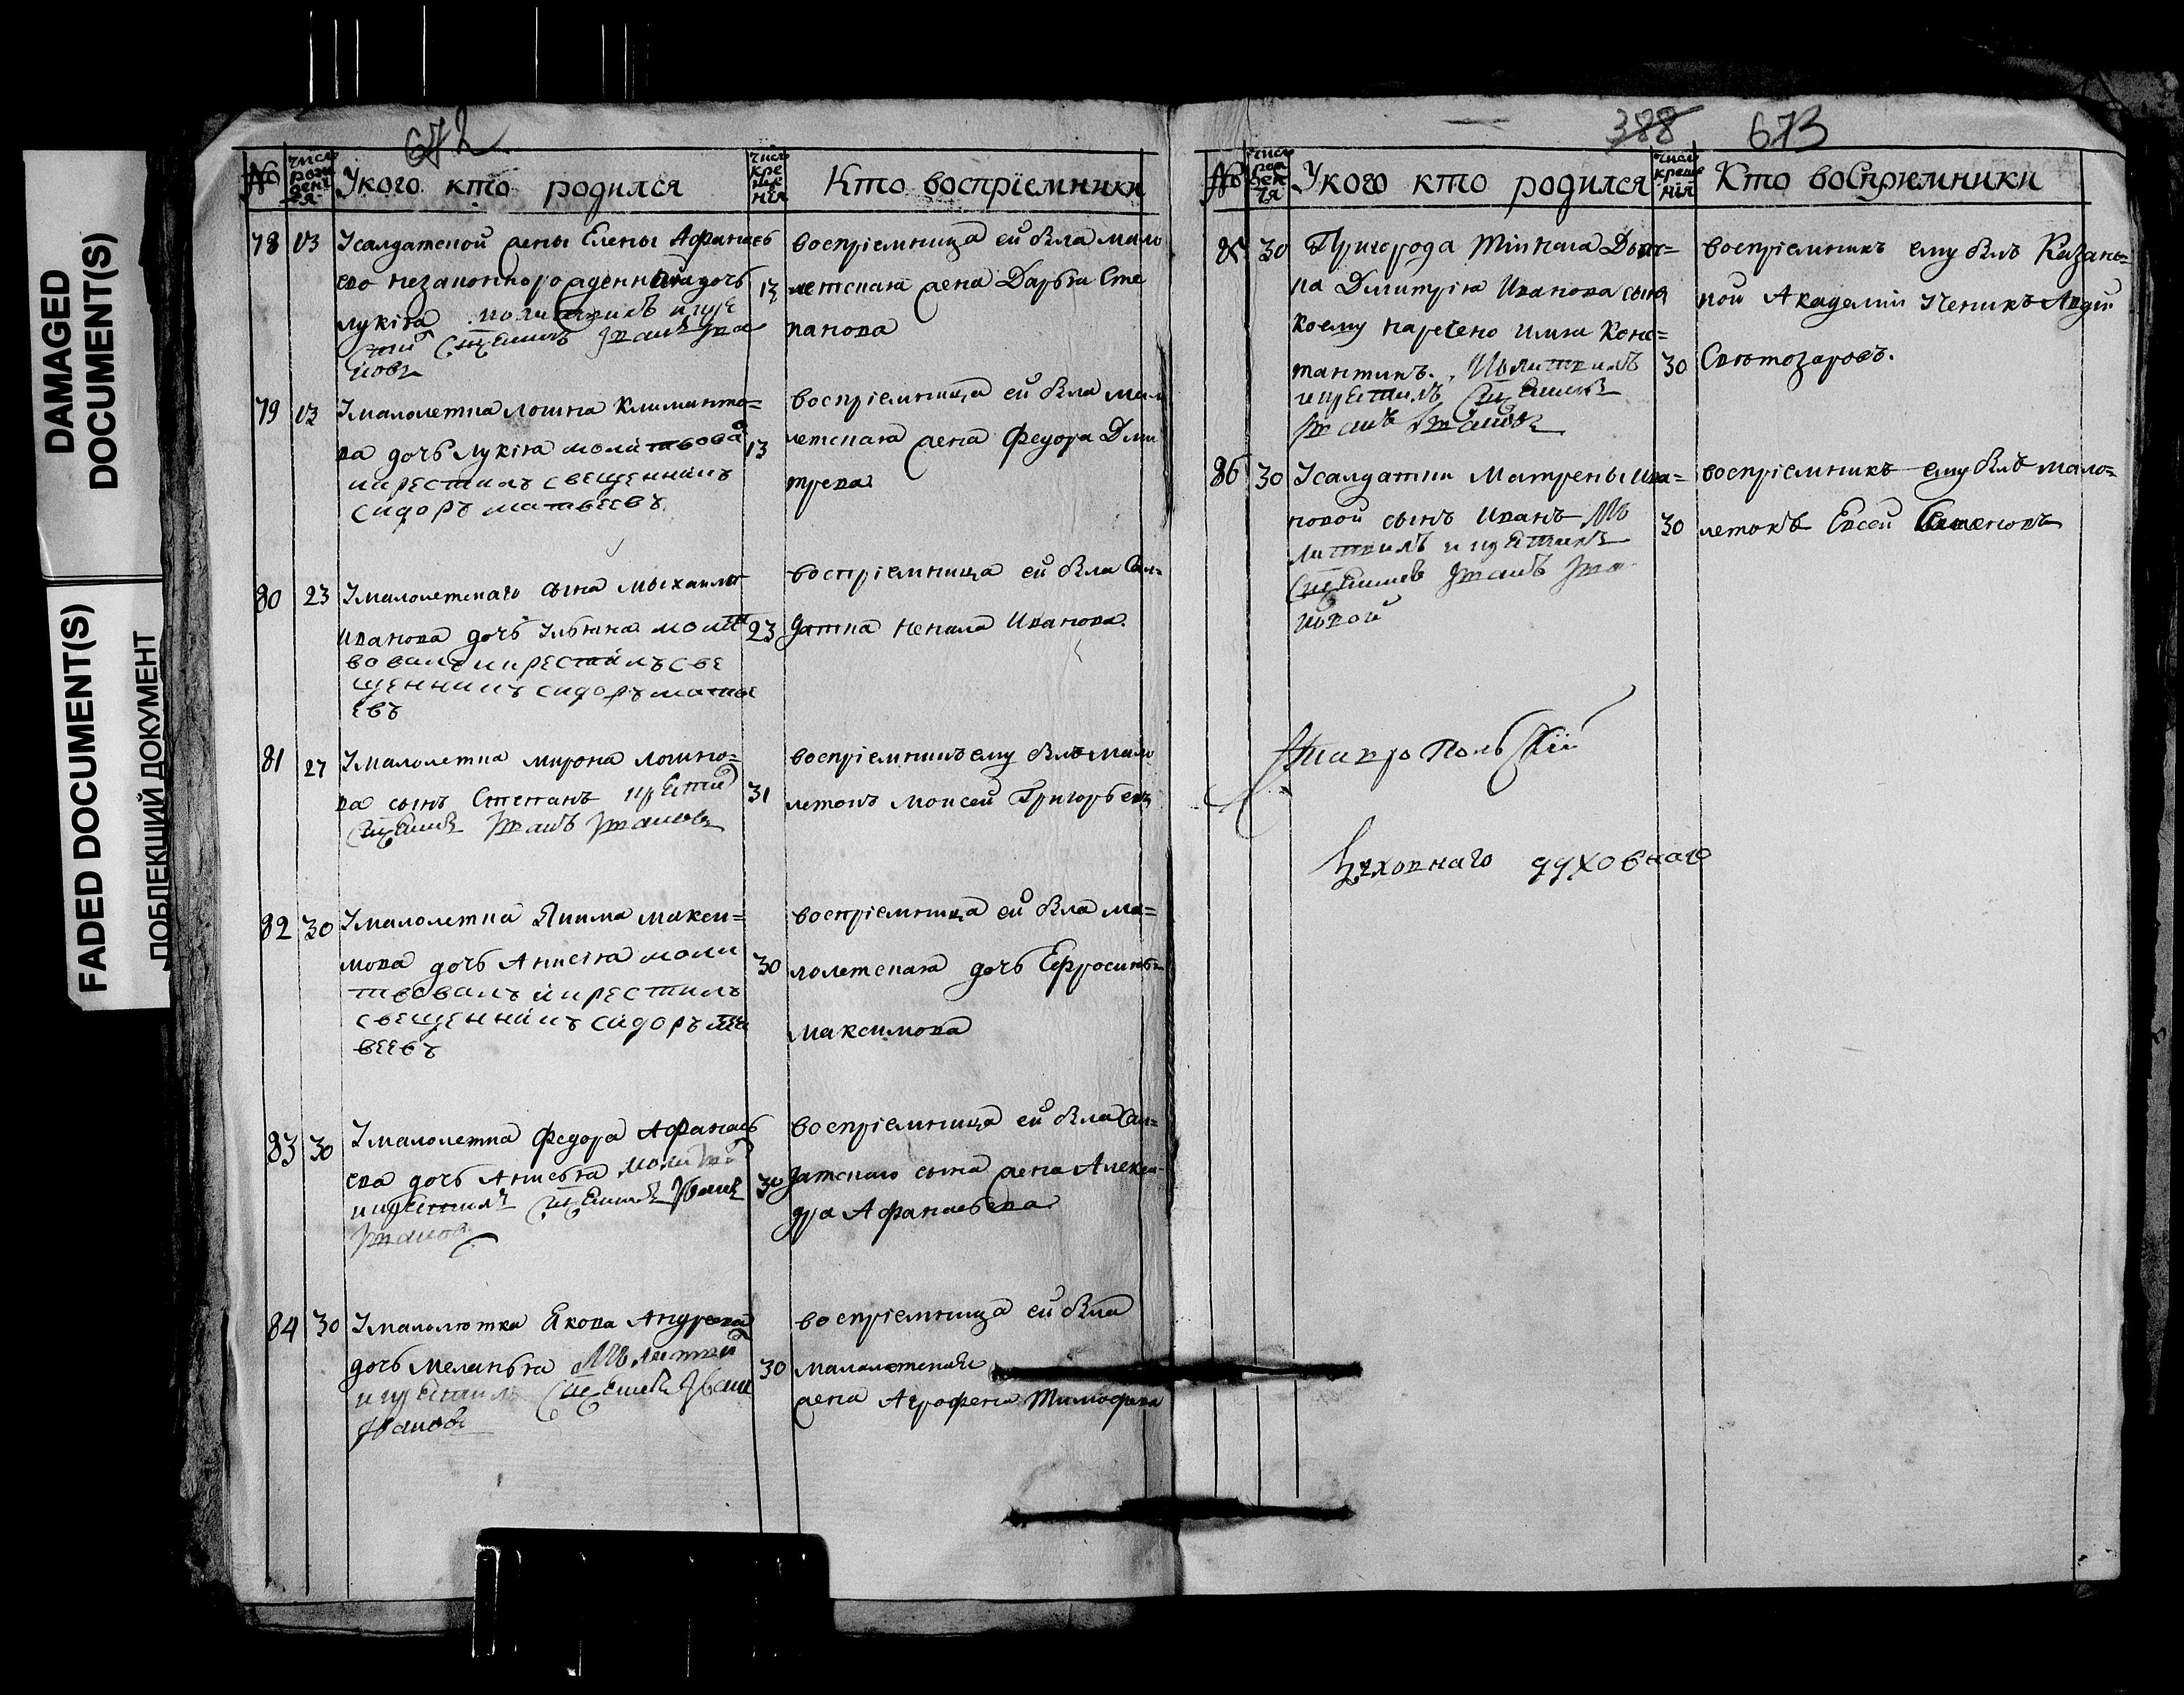 DAMAGED
DOCUMENT(S)
FADED DOCUMENT(S)
ПОБЛЕКШИЙ ДОКУМЕНТ
672
№ число рождения У кого кто родился число крещенія Кто воспріемники
78 13 У салдатской жены Елены Афанась
ево незаконнорожденная дочь
Лукіа
13
воспріемница ей была мало
летская жена Дарья Сте
панова
79 13 У малолетка Логина Климанто=
ва дочь Лукіа молитвова
и крестилъ свещенникъ
сидоръ матвеевъ
13
воспріемница ей была мало
летская жена Федора Дми
трева
80 23 У малолетскаго сына Михаила
Иванова дочь Ульяна молит
вовалъ и крестилъ све
щенникъ сидоръ матве
евъ
23
воспріемница ей была Сал=
датка Ненила Иванова
81 27 У малолетка Мирона Логино=
ва сынъ Степанъ крестил
Сщенникъ Иванъ Ивановъ
31
воспріемникъ ему былъ мало
летокъ Моисей Григорьевъ
82 30 У малолетка Якима Макси=
мова дочь Анисіа моли
твовалъ и крестилъ
свещенникъ сидоръ мат
веевъ
30
воспріемница ей была ма=
лолетская дочь Ефросинья
Максимова
83 30 У малолетка Федора Афанась
ева дочь Анисья молитвов
и крестилъ Сщенникъ Иванъ
Ивановъ
30
воспріемница ей была Сал=
датскаго сына жена Алексан
дра Афанасьева
84 30 У малолетка Якова Андреева
дочь Меланья Молитвов
и крестилъ Сщенникъ Иванъ
Ивановъ
30
воспріемница ей была
малолетская
жена Агрофена Тимофеева
388 673
№ число рожденія У кого кто родился число крещенія Кто восприемники
85 30 Пригорода Тіинска Дьяч=
ка Димитріа Иванова сынъ
коему наречено имя Конс=
тантинъ. Молитвилъ
и крестилъ Сщенникъ
Иванъ Ивановъ
30
воспріемникъ ему былъ Казанс=
кой Академіи Ученикъ Андрей
Светозаровъ.
86 30 У салдатки Матрены Ива=
новой сынъ Иванъ Мо
литвилъ и крестилъ
Сщенникъ Иванъ Ива
новой
30
воспріемникъ ему былъ мало=
летокъ Евсей Семеновъ
Духовнаго духовнаго